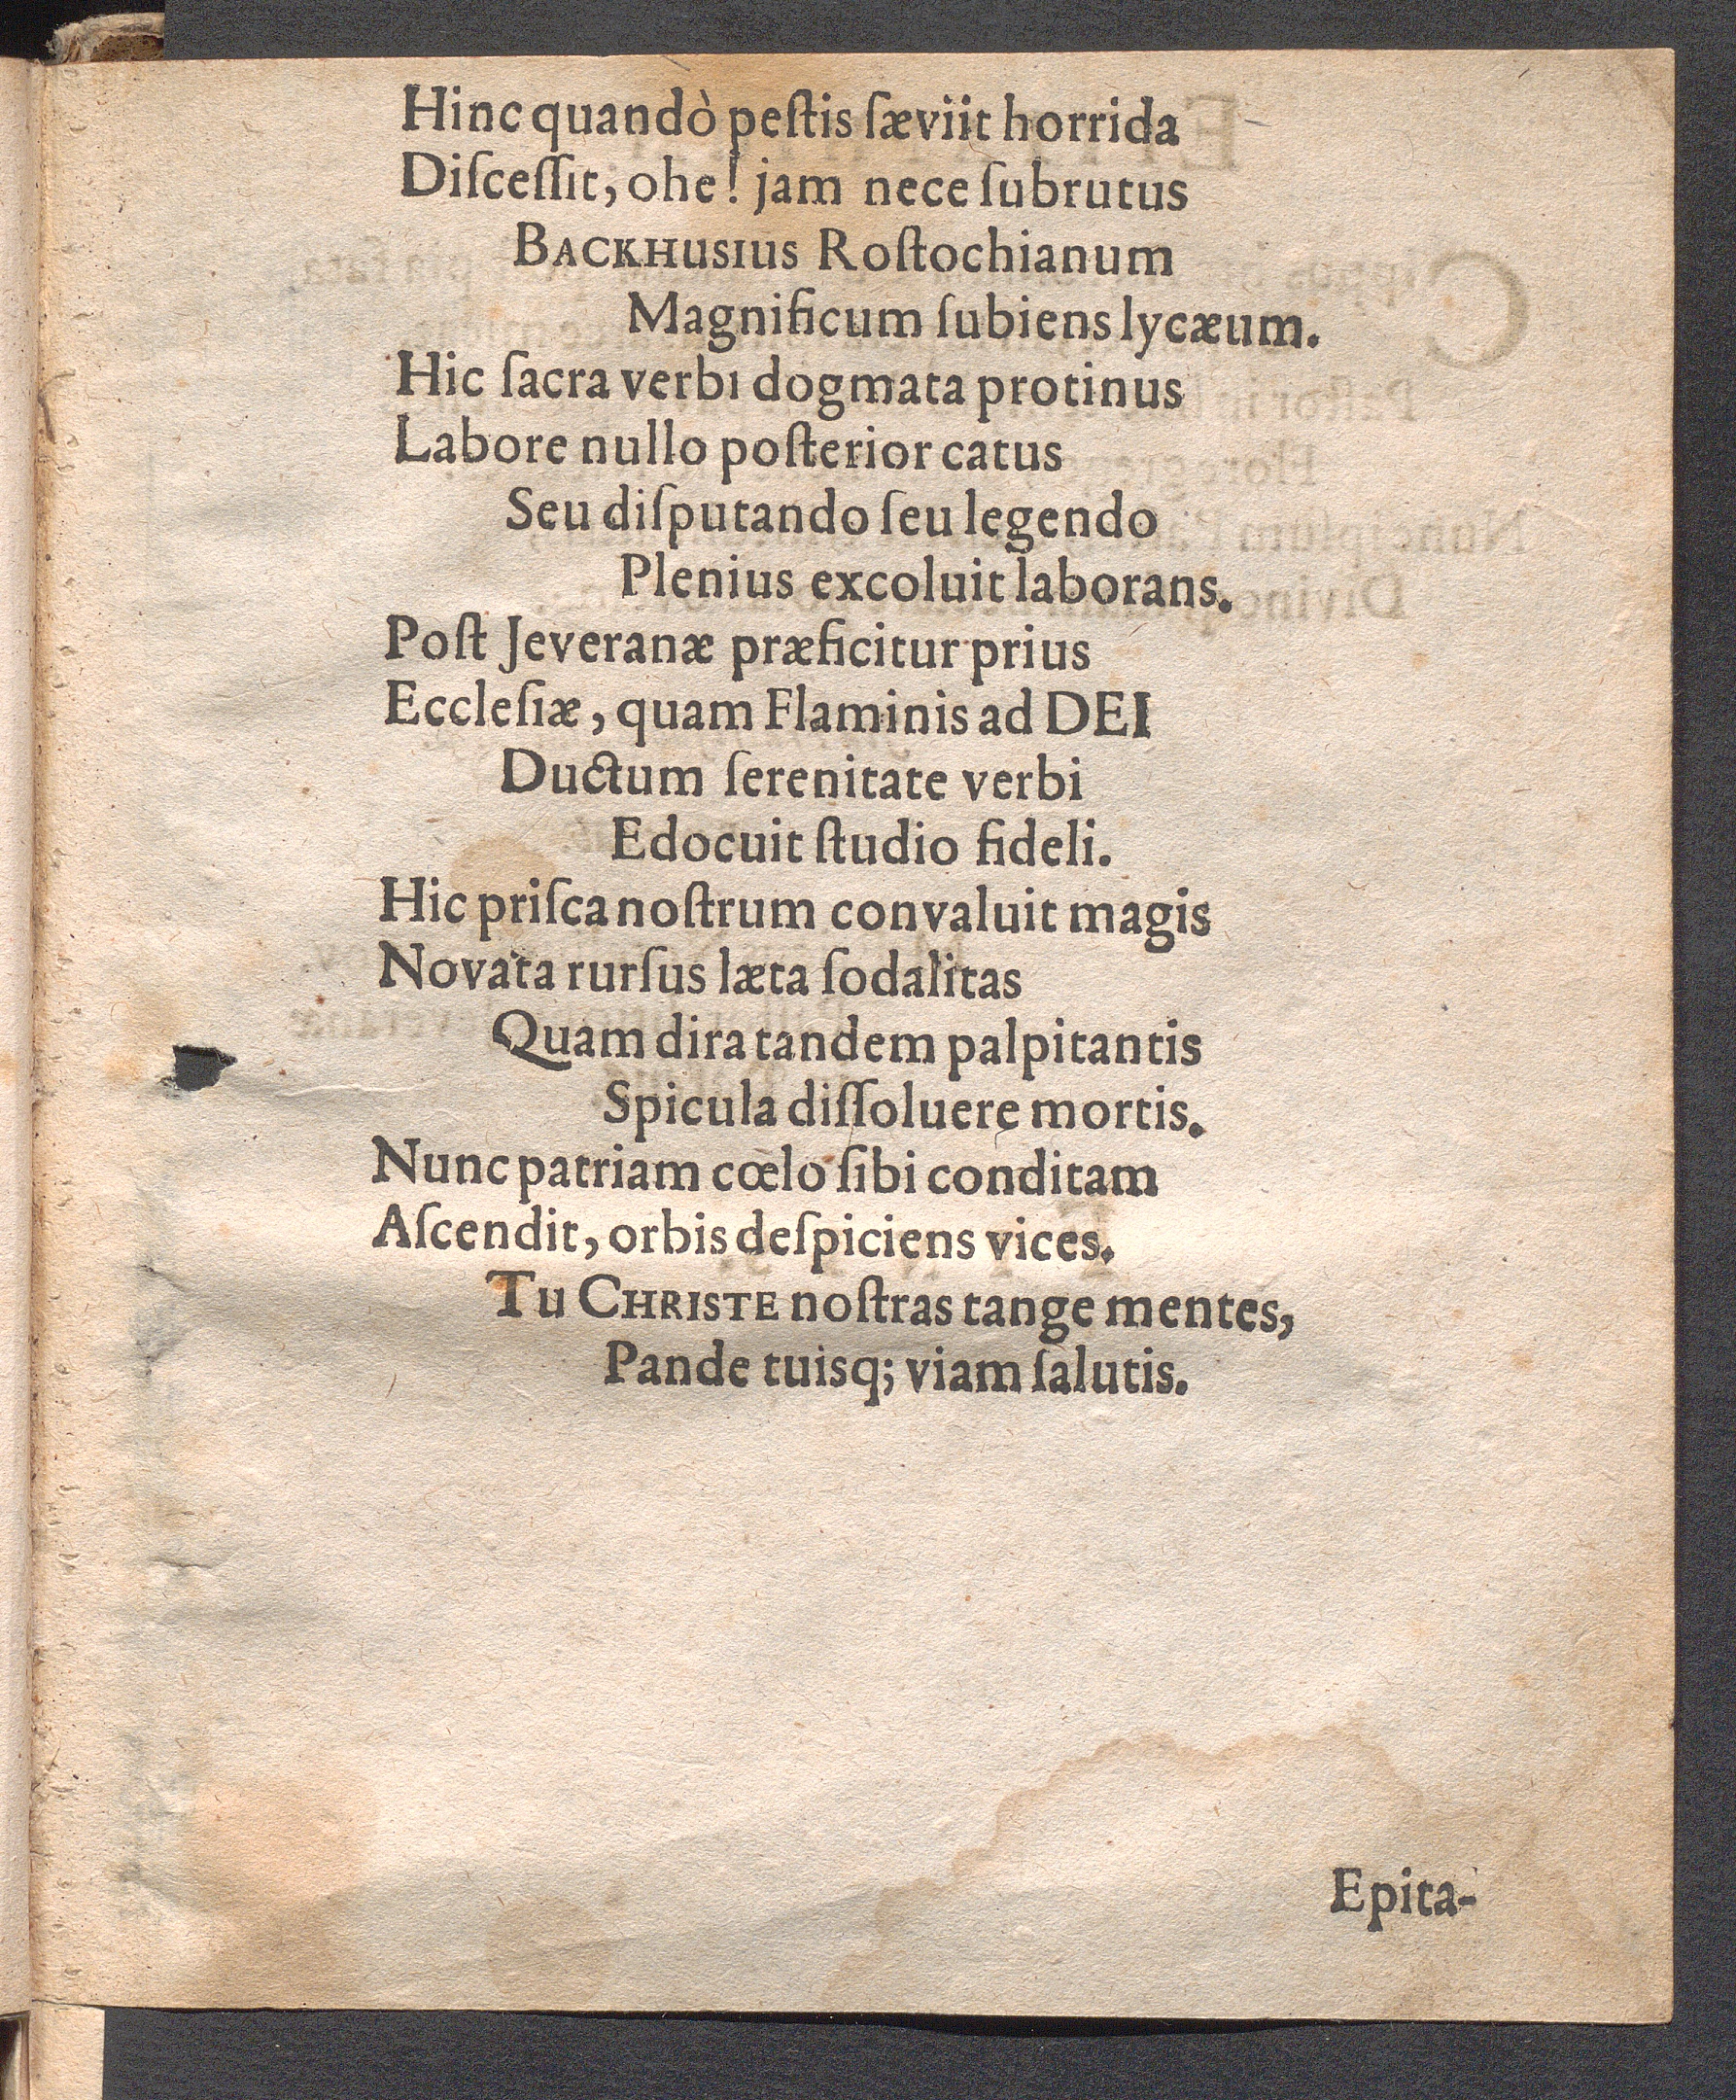 Hinc quandò peſtis ſæviit horrida
Diſceſſit, ohe! jam nece ſubrutus
BACKHUSIUS Roſtochianum
Magnificum ſubiens lycæum.
Hic ſacra verbi dogmata protinus
Labore nullo poſterior catus
Seu diſputando ſeu legendo
Plenius excoluit laborans.
Poſt Jeveranæ præficitur prius
Eccleſiæ, quam Flaminis ad DEI
Ductum ſerenitate verbi
Edocuit ſtudio fideli.
Hic priſca noſtrum convaluit magis
Novata rurſus læta ſodalitas
Quam dira tandem palpitantis
Spicula diſſoluere mortis.
Nunc patriam cœlo ſibi conditam
Aſcendit, orbis deſpiciens vices.
Tu CHRISTE noſtras tange mentes,
Pande tuisq; viam ſalutis.
Epita-